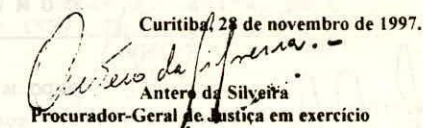 Curitiba, 28 de novembro de 1997.
Antero da Silveira.
Antero da Silveira
Procurador-Geral de Justiça em exercício